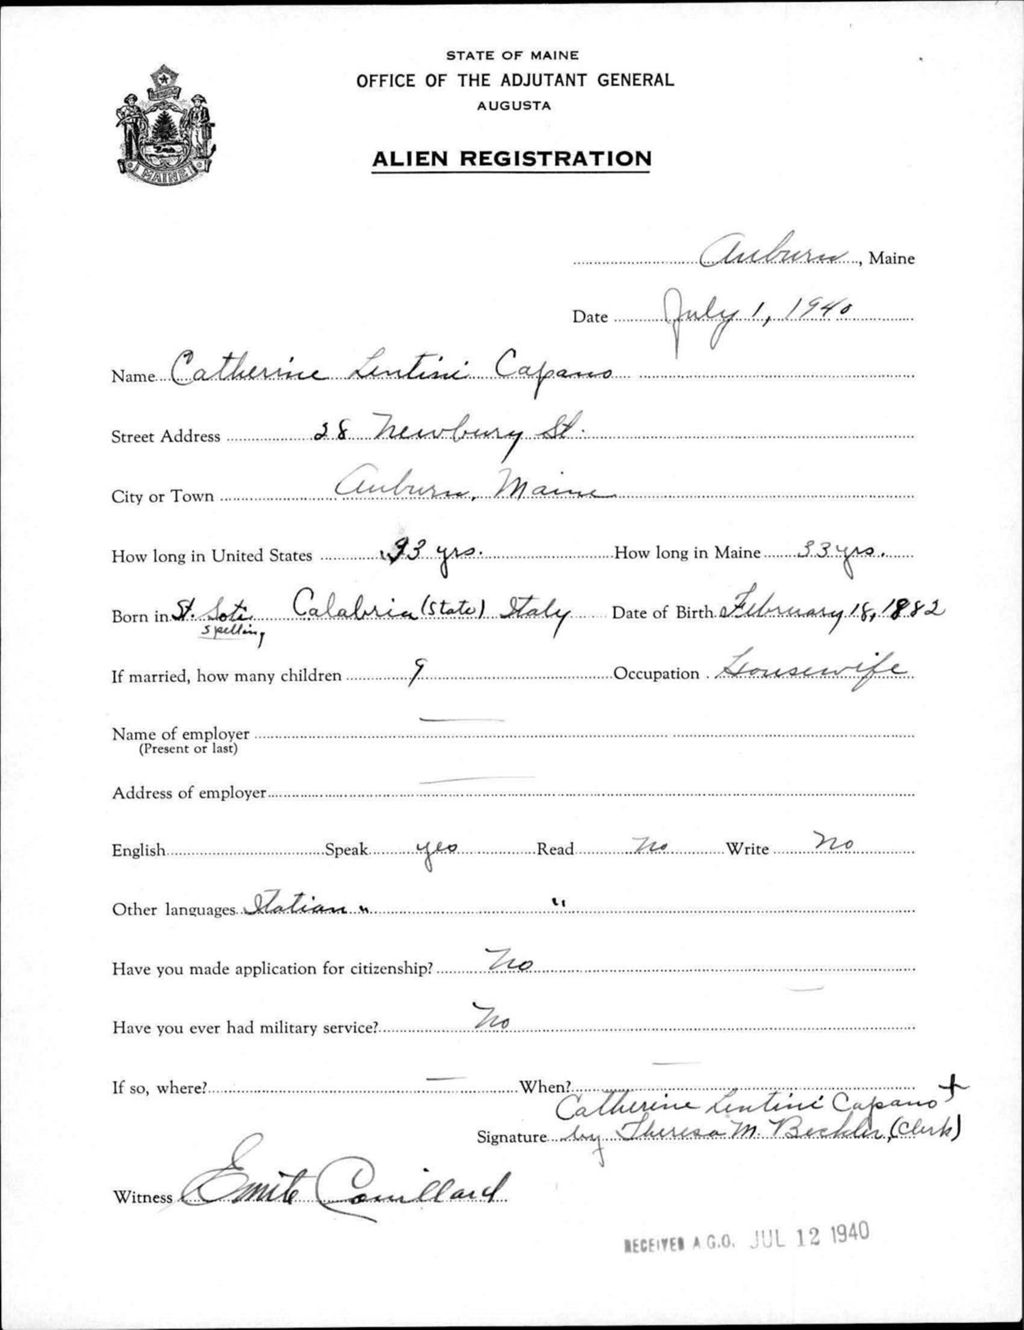 STATE OF MAINE
OFFICE OF THE ADJUTANT GENERAL
AUGUSTA
ALIEN REGISTRATION
MAINE
Auburn, Maine
Date July 1, 1940
Name Catherine Lentini Capano
Street Address 28 Newbury St.
City or Town Auburn, Maine
How long in United States 33 yrs. How long in Maine 33 yrs.
Born in St. Soti Calabria (State) Italy Date of Birth February 18, 1882
spelling
If married, how many children 9 Occupation Housewife
Name of employer —
(Present or last)
Address of employer —
English Speak yes Read No Write No
Other languages Italian " "
Have you made application for citizenship? No
Have you ever had military service? No
If so, where? — When? —
Catherine Lentini Capano +
Signature by Theresa M. Bechler, (Clerk)
Witness Emile Couillard
RECEIVED A.G.O. JUL 12 1940